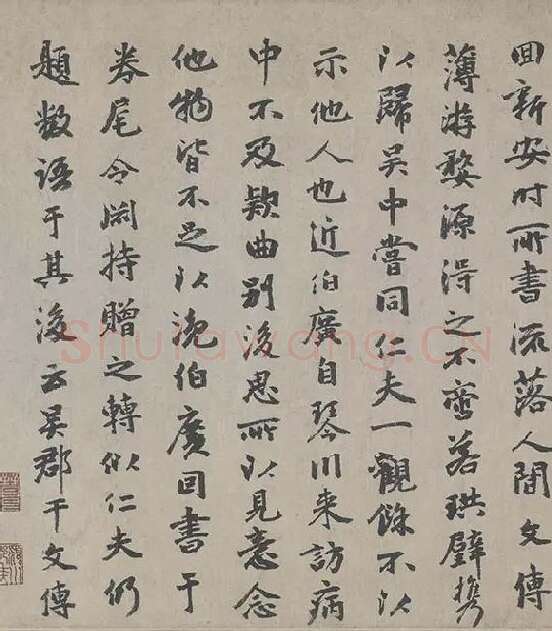 囬新安时所書流落人間文傳
薄游婺源得之不啻若珙璧携
以歸吳中嘗同仁夫一觀餘不以
示他人也近伯廣自琴川来訪病
中不及欵曲别後思所以見意念
他物皆不足以浼伯廣囬書于
卷尾令持贈之轉似仁夫仍
題數語于其後云吳郡干文傳
Shufawang.CN